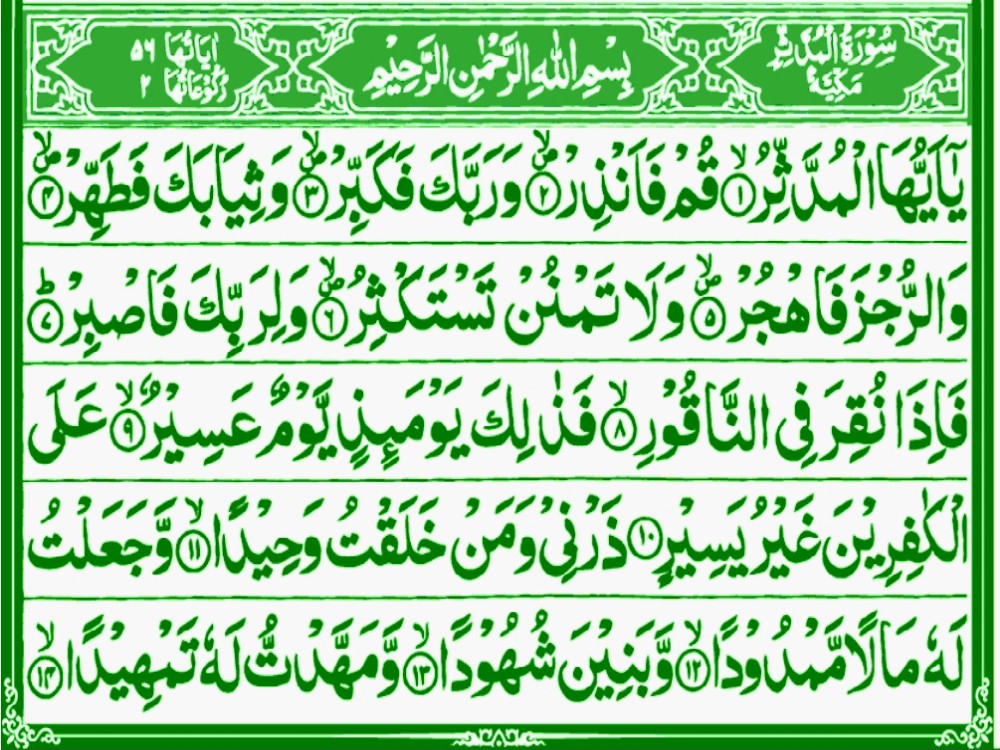 سُوْرَةُ الْمُدَّثِّرِ مَكِّيَّةٌ
بِسْمِ اللّٰهِ الرَّحْمٰنِ الرَّحِيْمِ
اٰيَاتُهَا ٥٦ رُكُوْعَاتُهَا ٢
يٰٓاَيُّهَا الْمُدَّثِّرُ ۙ‏﴿۱﴾ قُمْ فَاَنْذِرْ ۪ۙ‏﴿۲﴾ وَرَبَّكَ فَكَبِّرْ ۪ۙ‏﴿۳﴾ وَثِيَابَكَ فَطَهِّرْ ۪ۙ‏﴿۴﴾
وَالرُّجْزَ فَاهْجُرْ ۪ۙ‏﴿۵﴾ وَلَا تَمْنُنْ تَسْتَكْثِرُ ۪ۙ‏﴿۶﴾ وَلِرَبِّكَ فَاصْبِرْ ؕ‏﴿۷﴾
فَاِذَا نُقِرَ فِى النَّاقُوْرِ ۙ‏﴿۸﴾ فَذٰلِكَ يَوْمَئِذٍ يَّوْمٌ عَسِيْرٌ ۙ‏﴿۹﴾ عَلَى
الْكٰفِرِيْنَ غَيْرُ يَسِيْرٍ ﴿۱۰﴾ ذَرْنِىْ وَمَنْ خَلَقْتُ وَحِيْدًا ۙ‏﴿۱۱﴾ وَّجَعَلْتُ
لَهٗ مَالًا مَّمْدُوْدًا ۙ‏﴿۱۲﴾ وَّبَنِيْنَ شُهُوْدًا ۙ‏﴿۱۳﴾ وَّمَهَّدْتُّ لَهٗ تَمْهِيْدًا ۙ‏﴿۱۴﴾